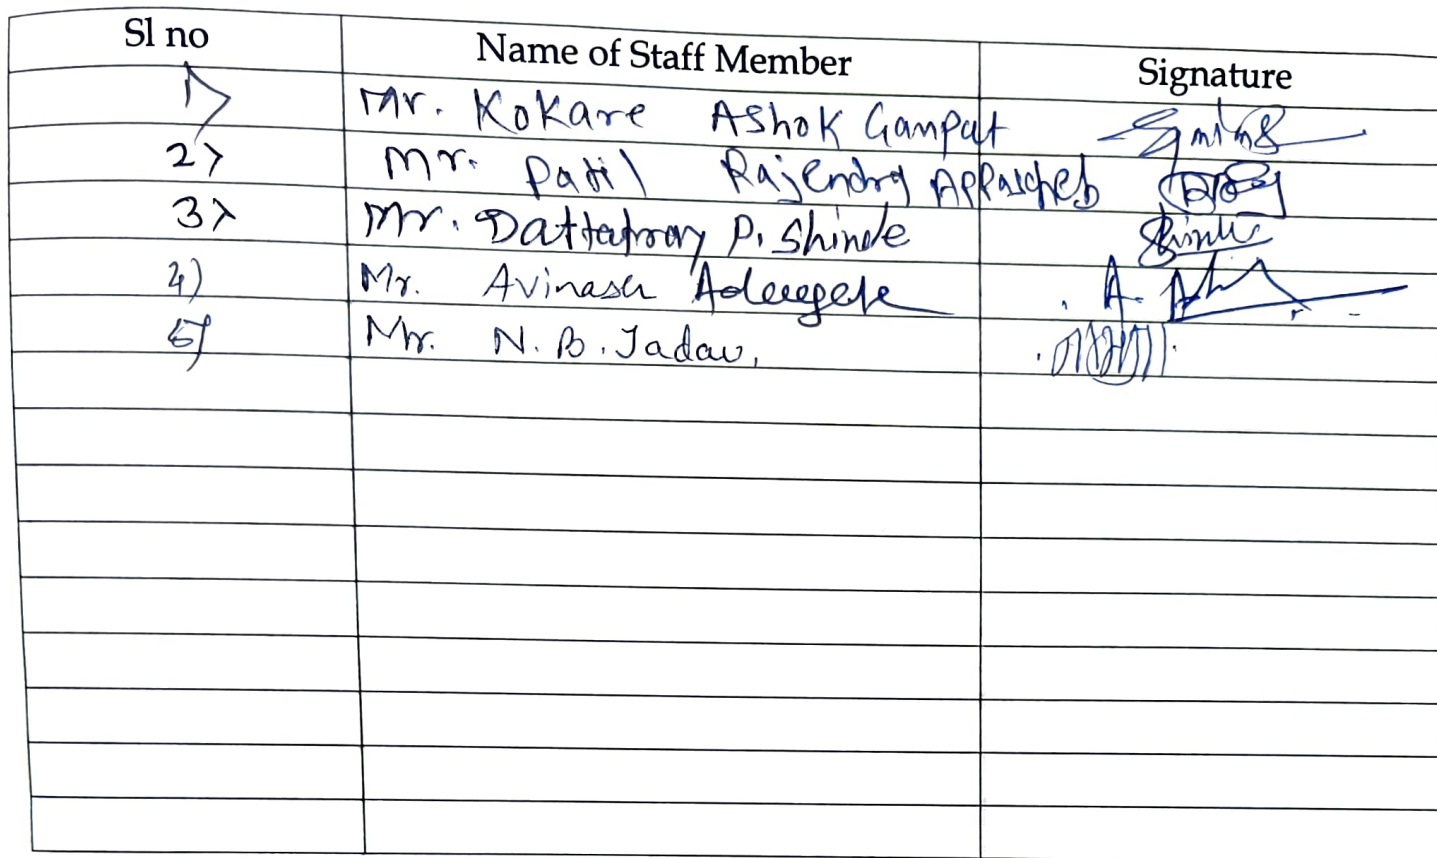 Sl no Name of Staff Member Signature
1> Mr. Kokare Ashok Ganpat
2> Mr. Patil Rajendra Appasaheb
3> Mr. Dattatray P. Shinde Shinde
4) Mr. Avinash
5) Mr. N. B. Jadav.